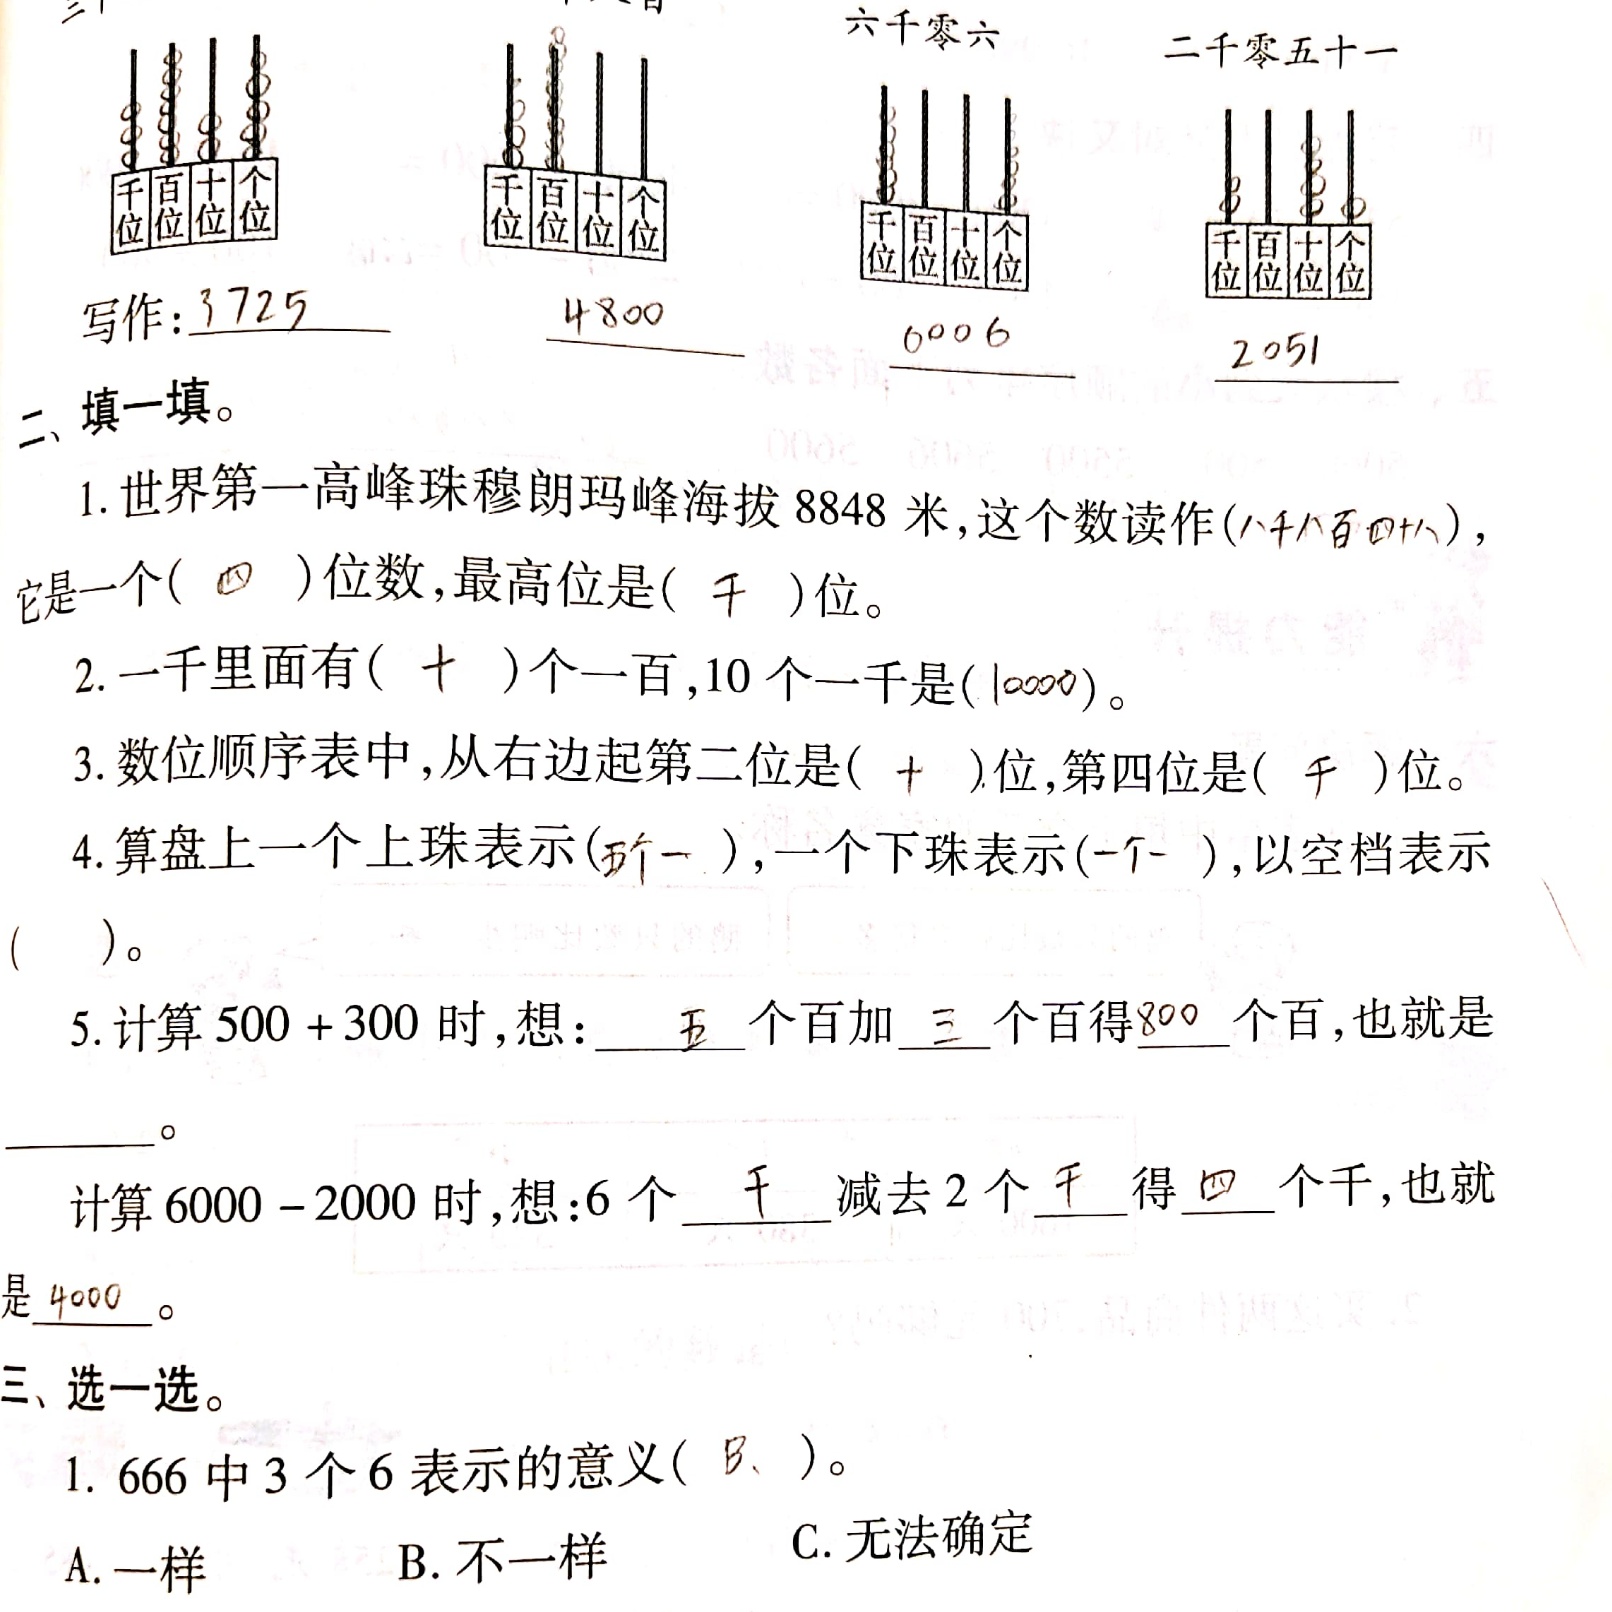 六千零六
二千零五十一
千位 百位 十位 个位
千位 百位 十位 个位
千位 百位 十位 个位
千位 百位 十位 个位
写作:3725 4800 6006 2051
二、填一填。
1.世界第一高峰珠穆朗玛峰海拔8848米,这个数读作(八千八百四十八),
它是一个(四)位数,最高位是(千)位。
2.一千里面有(十)个一百,10个一千是(10000)。
3.数位顺序表中,从右边起第二位是(十)位,第四位是(千)位。
4.算盘上一个上珠表示(五个一),一个下珠表示(一个一),以空档表示
( )。
5.计算500+300时,想:五个百加三个百得800个百,也就是
______。
计算6000-2000时,想:6个千减去2个千得四个千,也就
是4000。
三、选一选。
1. 666中3个6表示的意义(B、)。
A.一样 B.不一样 C.无法确定